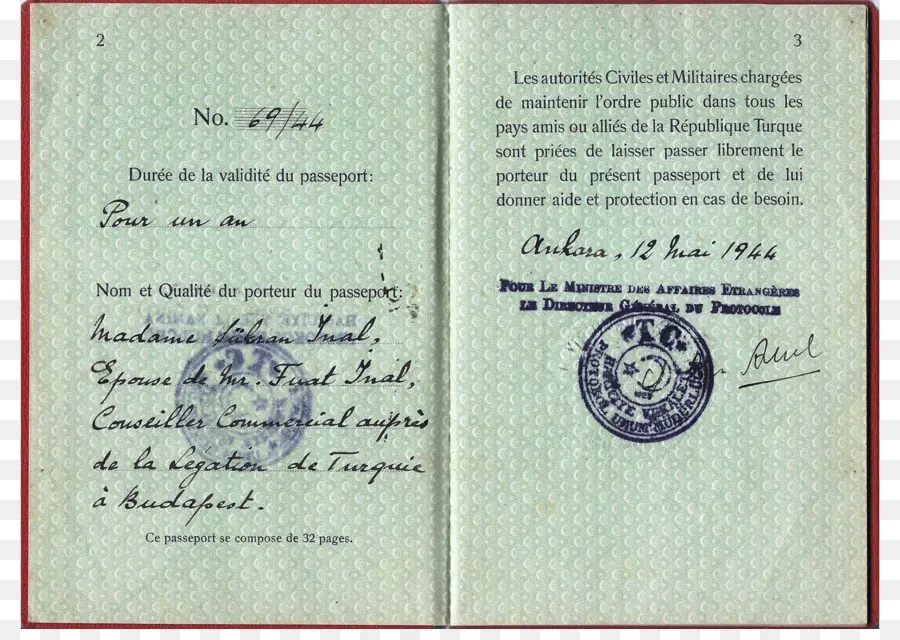 2
No. 69/44
Durée de la validité du passeport:
Pour un an
Nom et Qualité du porteur du passeport:
Madame Sükran Inal,
Epouse de Mr. Fuat Inal,
Conseiller Commercial auprès
de la Légation de Turquie
à Budapest.
Ce passeport se compose de 32 pages.
3
Les autorités Civiles et Militaires chargées
de maintenir l'ordre public dans tous les
pays amis ou alliés de la République Turque
sont priées de laisser passer librement le
porteur du présent passeport et de lui
donner aide et protection en cas de besoin.
Ankara, 12 Mai 1944
POUR LE MINISTRE DES AFFAIRES ETRANGÈRES
LE DIRECTEUR GÉNÉRAL DU PROTOCOLE
T.C.
HARICIYE VEKALETI
PROTOKOL UMUM MÜDÜRLÜĞÜ